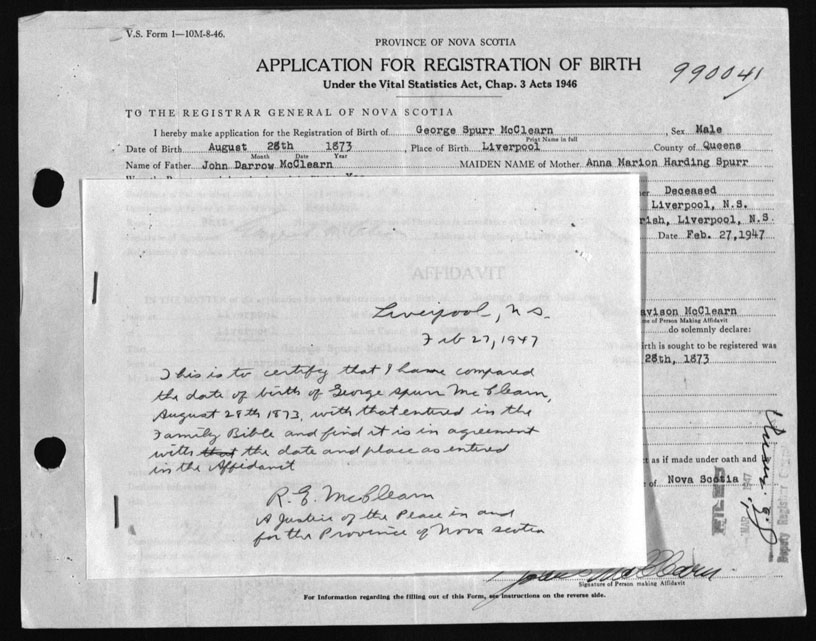 V.S. Form 1—10M-8-46.
PROVINCE OF NOVA SCOTIA
APPLICATION FOR REGISTRATION OF BIRTH
Under the Vital Statistics Act, Chap. 3 Acts 1946
990041
TO THE REGISTRAR GENERAL OF NOVA SCOTIA
I hereby make application for the Registration of Birth of George Spurr McClearn, Sex Male
Print Name in full
Date of Birth August 28th 1873, Place of Birth Liverpool County of Queens
Month Date Year
Name of Father John Darrow McClearn MAIDEN NAME of Mother Anna Marion Harding Spurr
Deceased
Liverpool, N.S.
rish, Liverpool, N.S.
Date Feb. 27, 1947
AFFIDAVIT
Liverpool, N.S.
Feb 27, 1947
This is to certify that I have compared
the date of birth of George Spurr McClearn,
August 28th 1873, with that entered in the
Family Bible and find it is in agreement
with that the date and place as entered
in the Affidavit
R. E. McClearn
A Justice of the Peace in and
for the Province of Nova Scotia
avison McClearn
me of Person Making Affidavit
do solemnly declare:
irth is sought to be registered was
28th, 1873
ct as if made under oath and
of Nova Scotia
FILED
MAR 1947
Deputy Registrar
Signature of Person making Affidavit
For Information regarding the filling out of this Form, see Instructions on the reverse side.